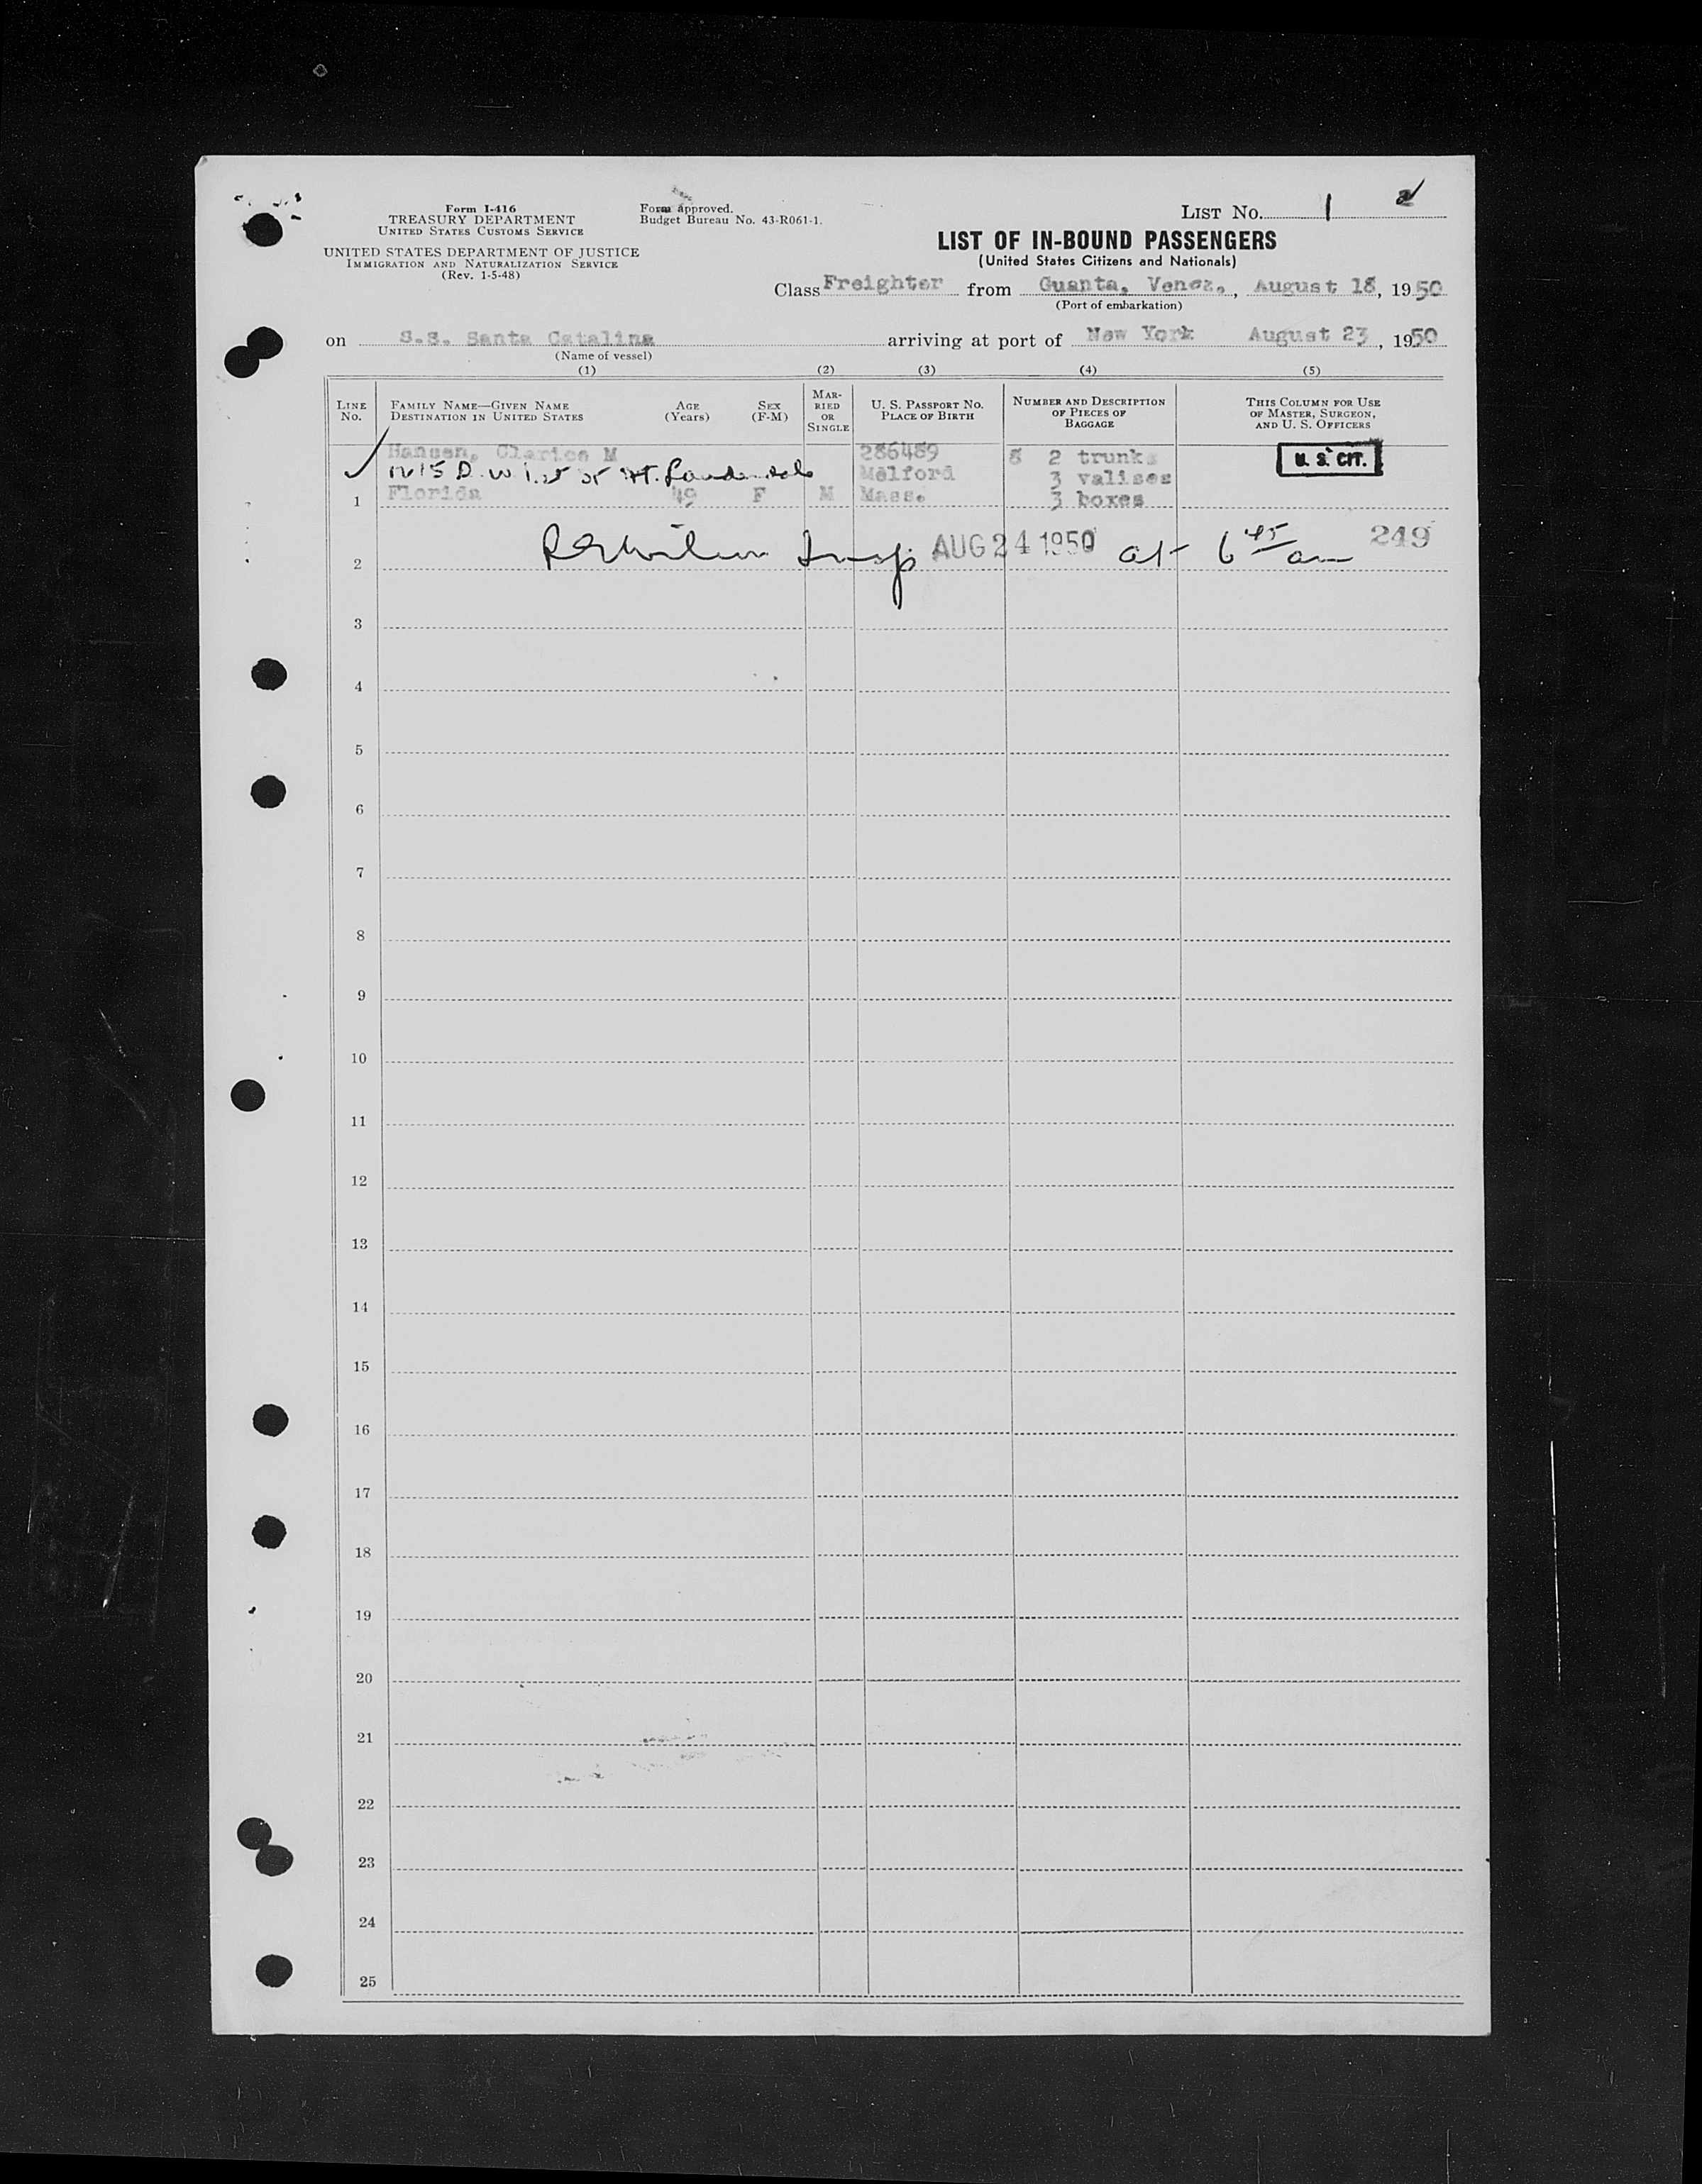 Form I-416
TREASURY DEPARTMENT
UNITED STATES CUSTOMS SERVICE
UNITED STATES DEPARTMENT OF JUSTICE
IMMIGRATION AND NATURALIZATION SERVICE
(Rev. 1-5-48)
Form approved.
Budget Bureau No. 43-R061-1.
LIST NO. 1
LIST OF IN-BOUND PASSENGERS
(United States Citizens and Nationals)
Class Freighter from Guanta, Venez., August 18, 1950
(Port of embarkation)
on S.S. Santa Catalina arriving at port of New York August 23, 1950
(Name of vessel)
(1) (2) (3) (4) (5)
LINE NO.
FAMILY NAME—GIVEN NAME
DESTINATION IN UNITED STATES
AGE (Years)
SEX (F-M)
MARRIED OR SINGLE
U. S. PASSPORT NO.
PLACE OF BIRTH
NUMBER AND DESCRIPTION OF PIECES OF BAGGAGE
THIS COLUMN FOR USE OF MASTER, SURGEON, AND U. S. OFFICERS
Hansen, Clarice M 286489 8 2 trunks U. S. CIT.
Ft. Lauderdale Melford 3 valises
1 Florida 49 F M Mass. 3 boxes
2 Insp. AUG 24 1950 at 6 45 am 249
3
4
5
6
7
8
9
10
11
12
13
14
15
16
17
18
19
20
21
22
23
24
25